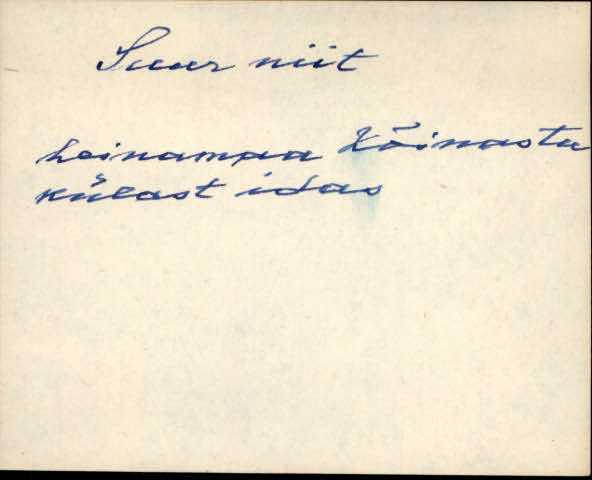 Suur niit
heinamaa Kõinastu
külast idas